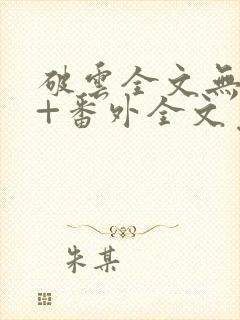 破雲全文無
+番外全文
朱某